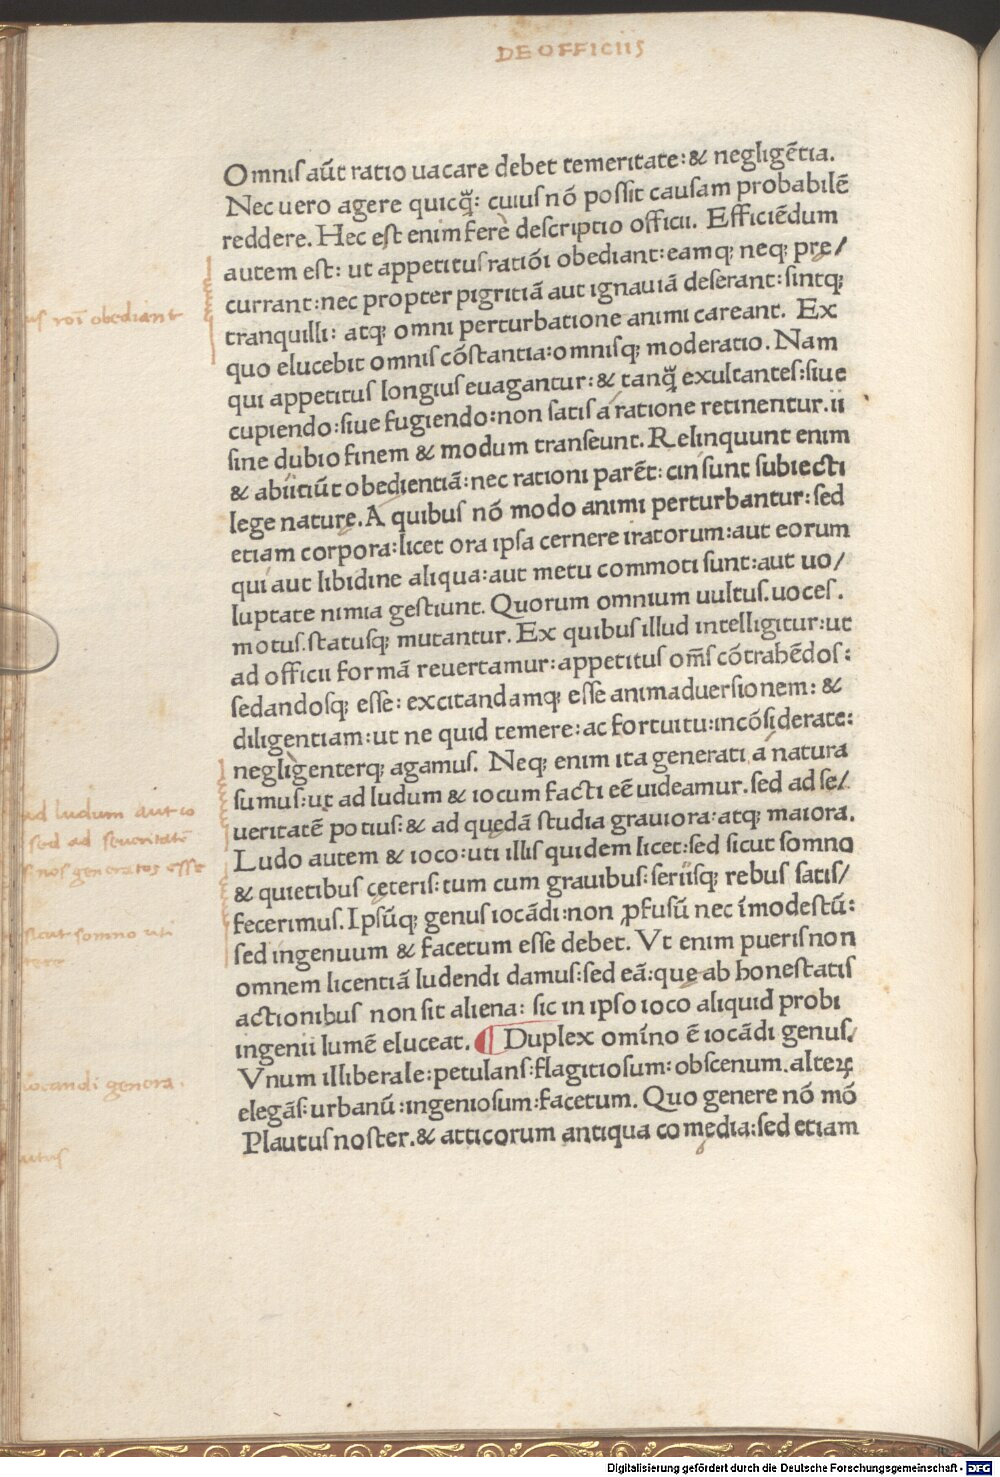 DE OFFICIIS
Omnis aūt ratio uacare debet temeritate: & negligētia.
Nec uero agere quicq̃: cuius nō possit causam probabilē
reddere. Hec est enim ferè descriptio officii. Efficiēdum
autem est: ut appetitus ratiōi obediant: eamq; neq; prę/
currant: nec propter pigritiā aut ignauiā deserant: sintq;
tranquilli: atq; omni perturbatione animi careant. Ex
quo elucebit omnis cōstantia: omnisq; moderatio. Nam
qui appetitus longius euagantur: & tanq̃ exultantes: siue
cupiendo: siue fugiendo: non satis a ratione retinentur. ii
sine dubio finem & modum transeunt. Relinquunt enim
& abiitiūt obedientiā: nec rationi parēt: cui sunt subiecti
lege naturę. A quibus nō modo animi perturbantur: sed
etiam corpora: licet ora ipsa cernere iratorum: aut eorum
qui aut libidine aliqua: aut metu commoti sunt: aut uo/
luptate nimia gestiunt. Quorum omnium uultus. uoces.
motus. statusq; mutantur. Ex quibus illud intelligitur: ut
ad officii formā reuertamur: appetitus om̄s cōtrahēdos:
sedandosq; esse: excitandamq; esse animaduersionem: &
diligentiam: ut ne quid temere: ac fortuitu: incōsiderate:
negligenterq; agamus. Neq; enim ita generati a natura
sumus: ut ad ludum & iocum facti eē uideamur. sed ad se/
ueritatē potius: & ad quędā studia grauiora: atq; maiora.
Ludo autem & ioco: uti illis quidem licet: sed sicut somno
& quietibus cęteris: tum cum grauibus: seriisq; rebus satis/
fecerimus. Ipsūq; genus iocādi: non ꝓfusū nec īmodestū:
sed ingenuum & facetum esse debet. Vt enim pueris non
omnem licentiā ludendi damus: sed eā: quę ab honestatis
actionibus non sit aliena: sic in ipso ioco aliquid probi
ingenii lumē eluceat. ¶ Duplex omīno ē iocādi genus.
Vnum illiberale: petulans: flagitiosum: obscenum. alteꝝ
elegās: urbanū: ingeniosum: facetum. Quo genere nō mō
Plautus noster. & atticorum antiqua comedia: sed etiam
us roī obediant
ad ludum aut io
sed ad seueritatē
nos generatos esse
sicut somno uti
iocandi genera.
Digitalisierung gefördert durch die Deutsche Forschungsgemeinschaft - DFG